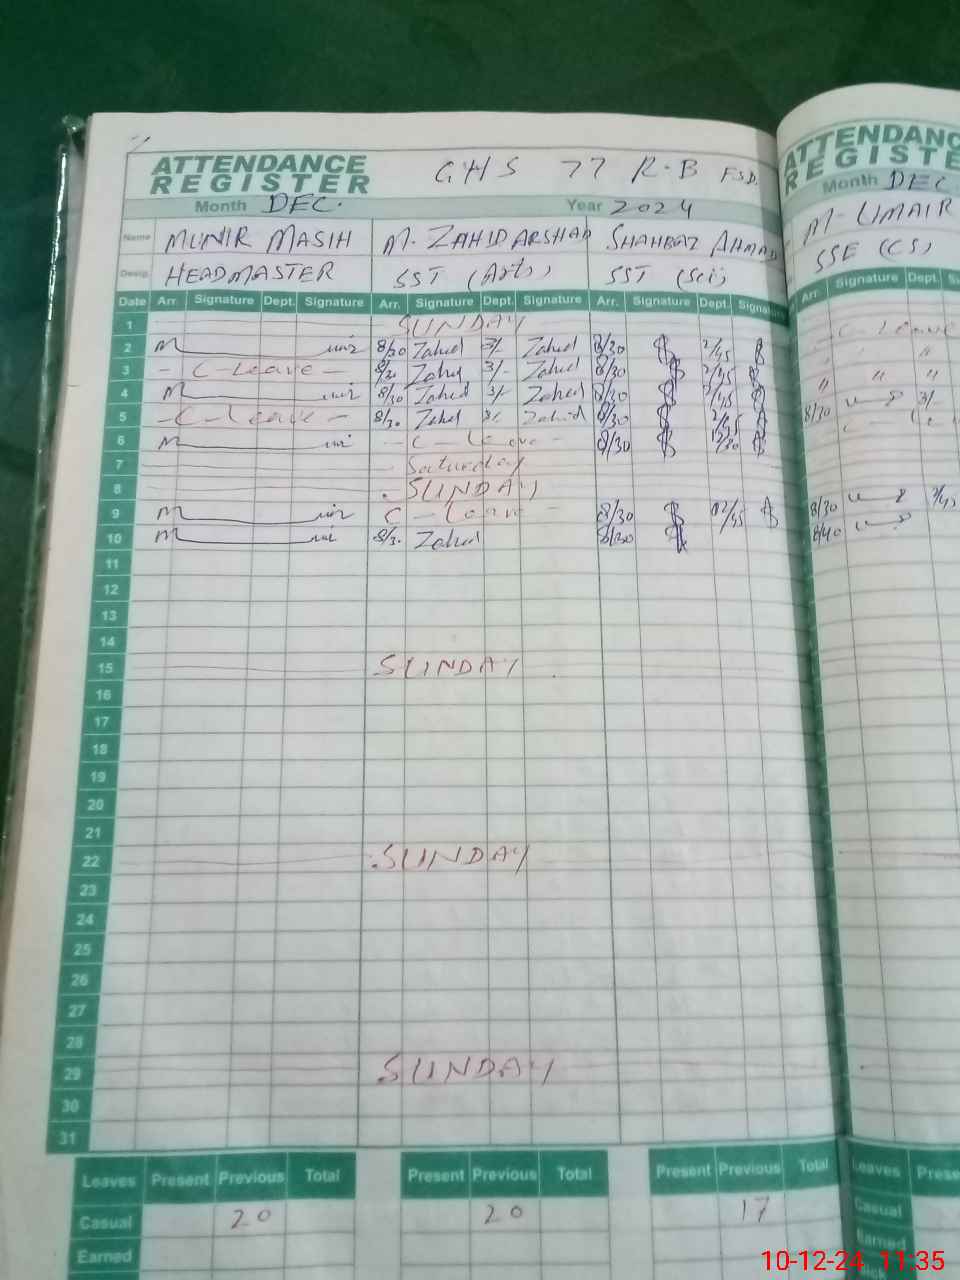 ATTENDANCE REGISTER GHS 77 R-B FSD.
Month DEC. Year 2024
Name MUNIR MASIH M. ZAHID ARSHAD SHAHBAZ AHMAD
Desig. HEADMASTER SST (Arts) SST (Sci)
Date Arr. Signature Dept. Signature Arr. Signature Dept. Signature Arr. Signature Dept. Signature
1 SUNDAY
2 8/30 Zahid 3/- Zahid 8/30 2/45
3 - C-Leave - 8/30 Zahid 3/- Zahid 8/30 2/45
4 8/30 Zahid 3/- Zahid 8/30 2/45
5 - C-Leave - 8/30 Zahid 3/- Zahid 8/30 2/45
6 - C-Leave - 8/30
7 Saturday
8 SUNDAY
9 C-Leave - 8/30
10 Zahid 8/30
11
12
13
14
15 SUNDAY
16
17
18
19
20
21
22 SUNDAY
23
24
25
26
27
28
29 SUNDAY
30
31
Leaves Present Previous Total Present Previous Total Present Previous Total
Casual 20 20 17
Earned
ATTENDANC
REGISTE
Month DEC
M. UMAIR
SSE (CS)
Arr. Signature Dept.
C Leave
"
" " "
8/30 3/-
8/30
8/40
Leaves Prese
Casual
Earned
10-12-24 11:35